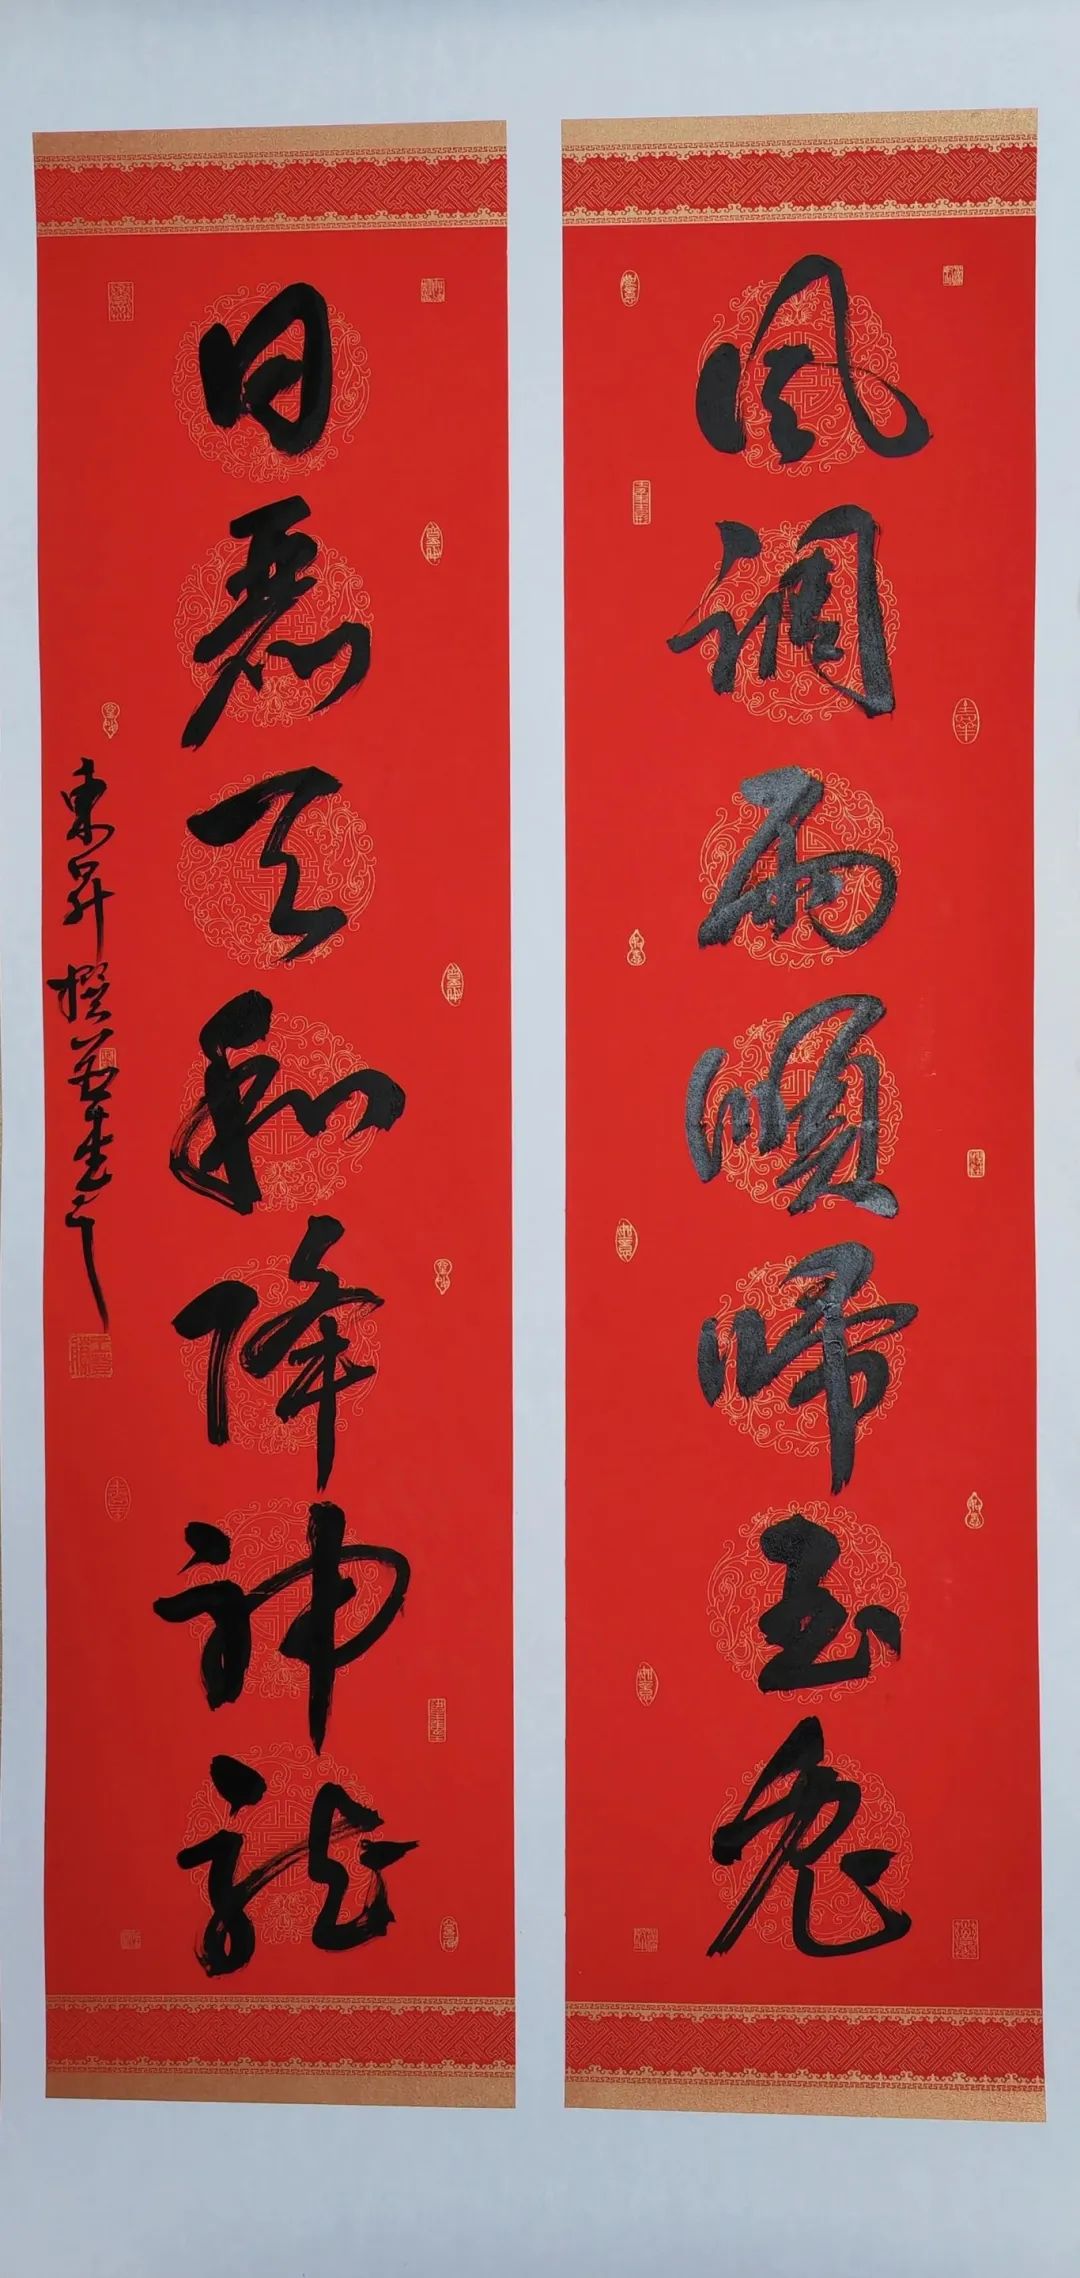 風調雨順歸玉兔
日麗天和降神龍
東昇撰并書